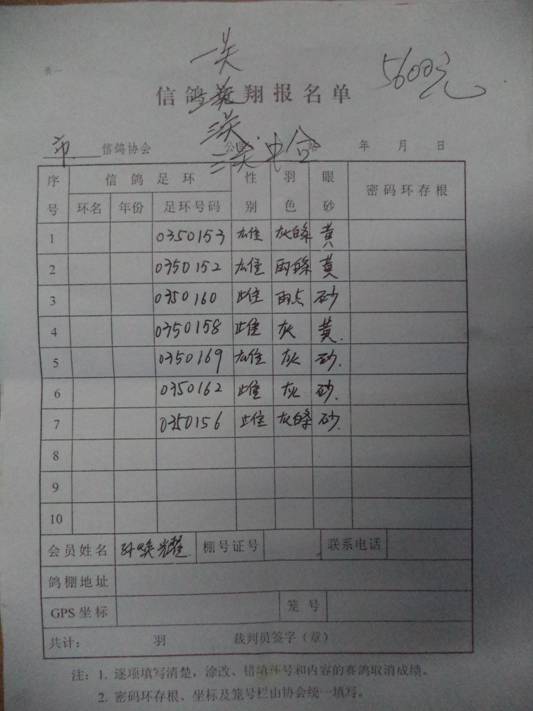 表一
一关
5600元
信鸽竞翔报名单
三关
市 信鸽协会 年 月 日
序号 信鸽足环 性别 羽色 眼砂 密码环存根
环名 年份 足环号码
1 0350153 雄 灰白条 黄
2 0350152 雄 雨条 黄
3 0350160 雌 雨点 砂
4 0350158 雌 灰 黄.
5 0350169 雄 灰 砂.
6 0350162 雌 灰 砂.
7 0350156 雌 灰白条 砂.
8
9
10
会员姓名 焕耀 棚号证号 联系电话
鸽棚地址
GPS坐标 笼号
共计: 羽 裁判员签字(章)
注: 1. 逐项填写清楚,涂改、错填环号和内容的赛鸽取消成绩。
2. 密码环存根、坐标及笼号栏由协会统一填写。